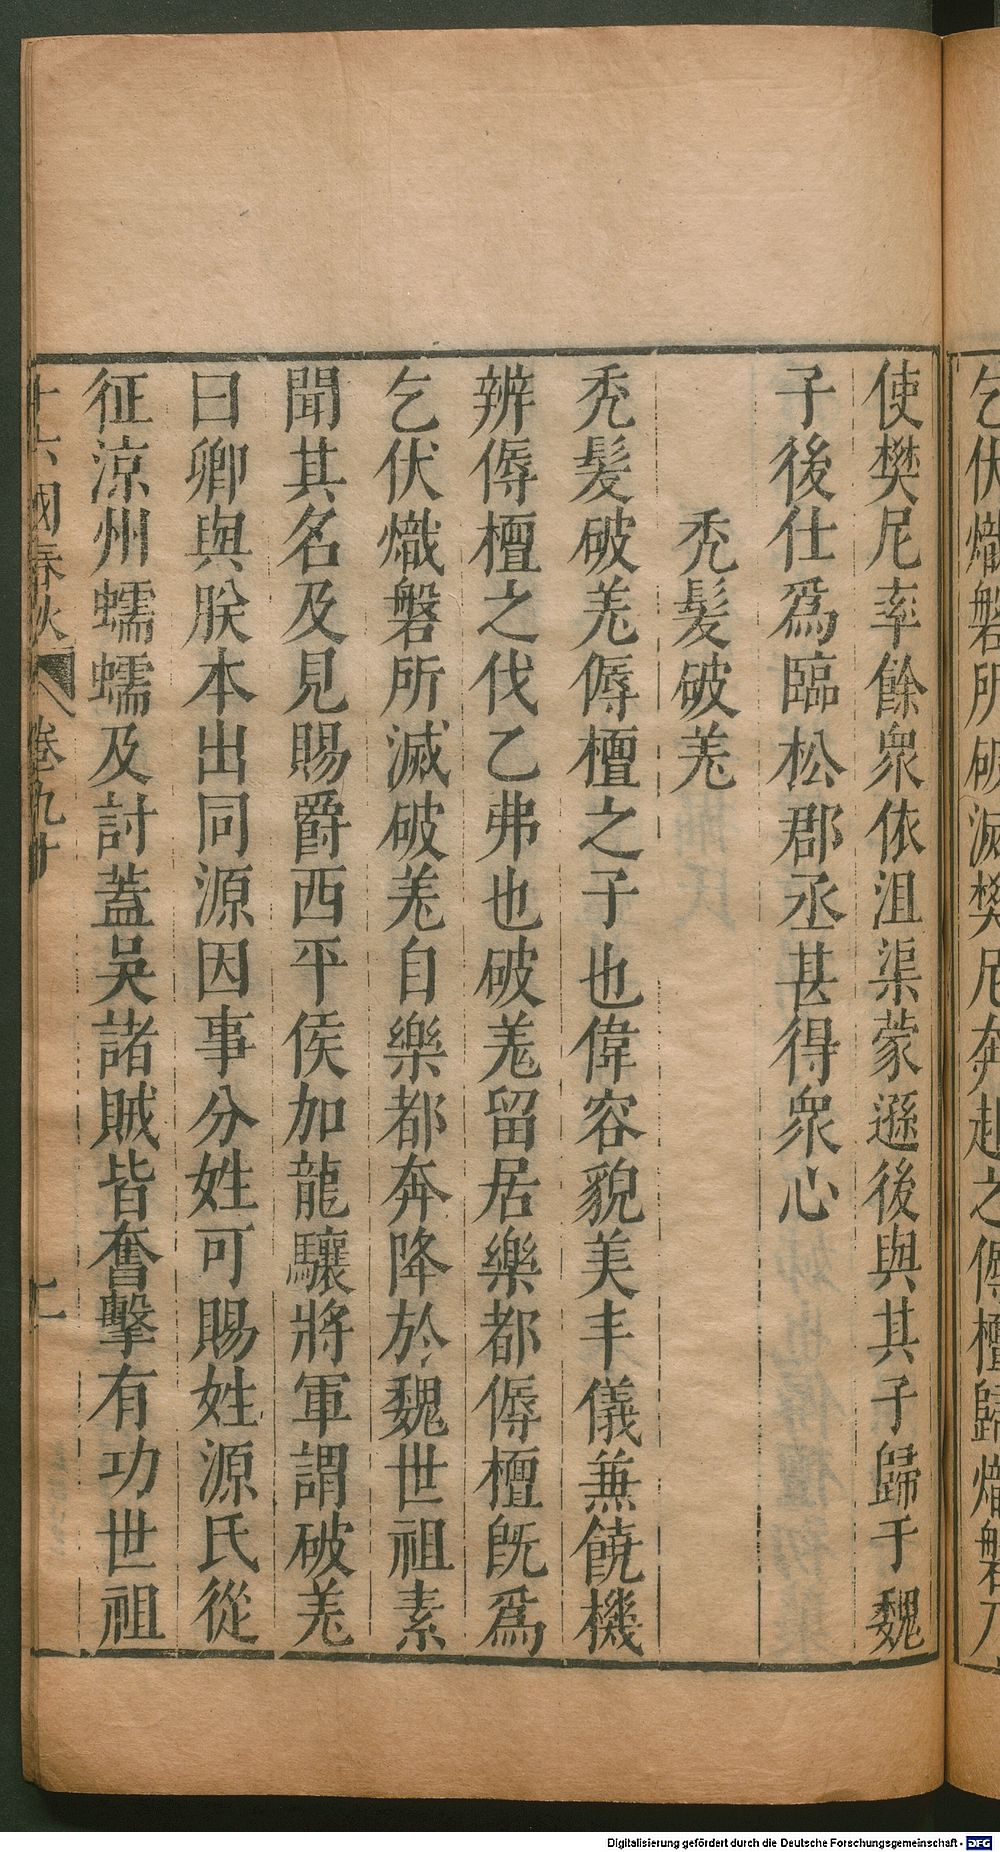 乞伏熾磐所破滅樊尼奔赴之傉檀歸熾磐乃
使樊尼率餘衆依沮渠蒙遜後與其子歸于魏
子後仕爲臨松郡丞甚得衆心
禿髮破羌
禿髮破羌傉檀之子也偉容貌美丰儀兼饒機
辨傉檀之伐乙弗也破羌留居樂都傉檀旣爲
乞伏熾磐所滅破羌自樂都奔降於魏世祖素
聞其名及見賜爵西平侯加龍驤將軍謂破羌
曰卿與朕本出同源因事分姓可賜姓源氏從
征涼州蠕蠕及討蓋吳諸賊皆奮擊有功世祖
十六國春秋 卷九十 二
Digitalisierung gefördert durch die Deutsche Forschungsgemeinschaft - DFG